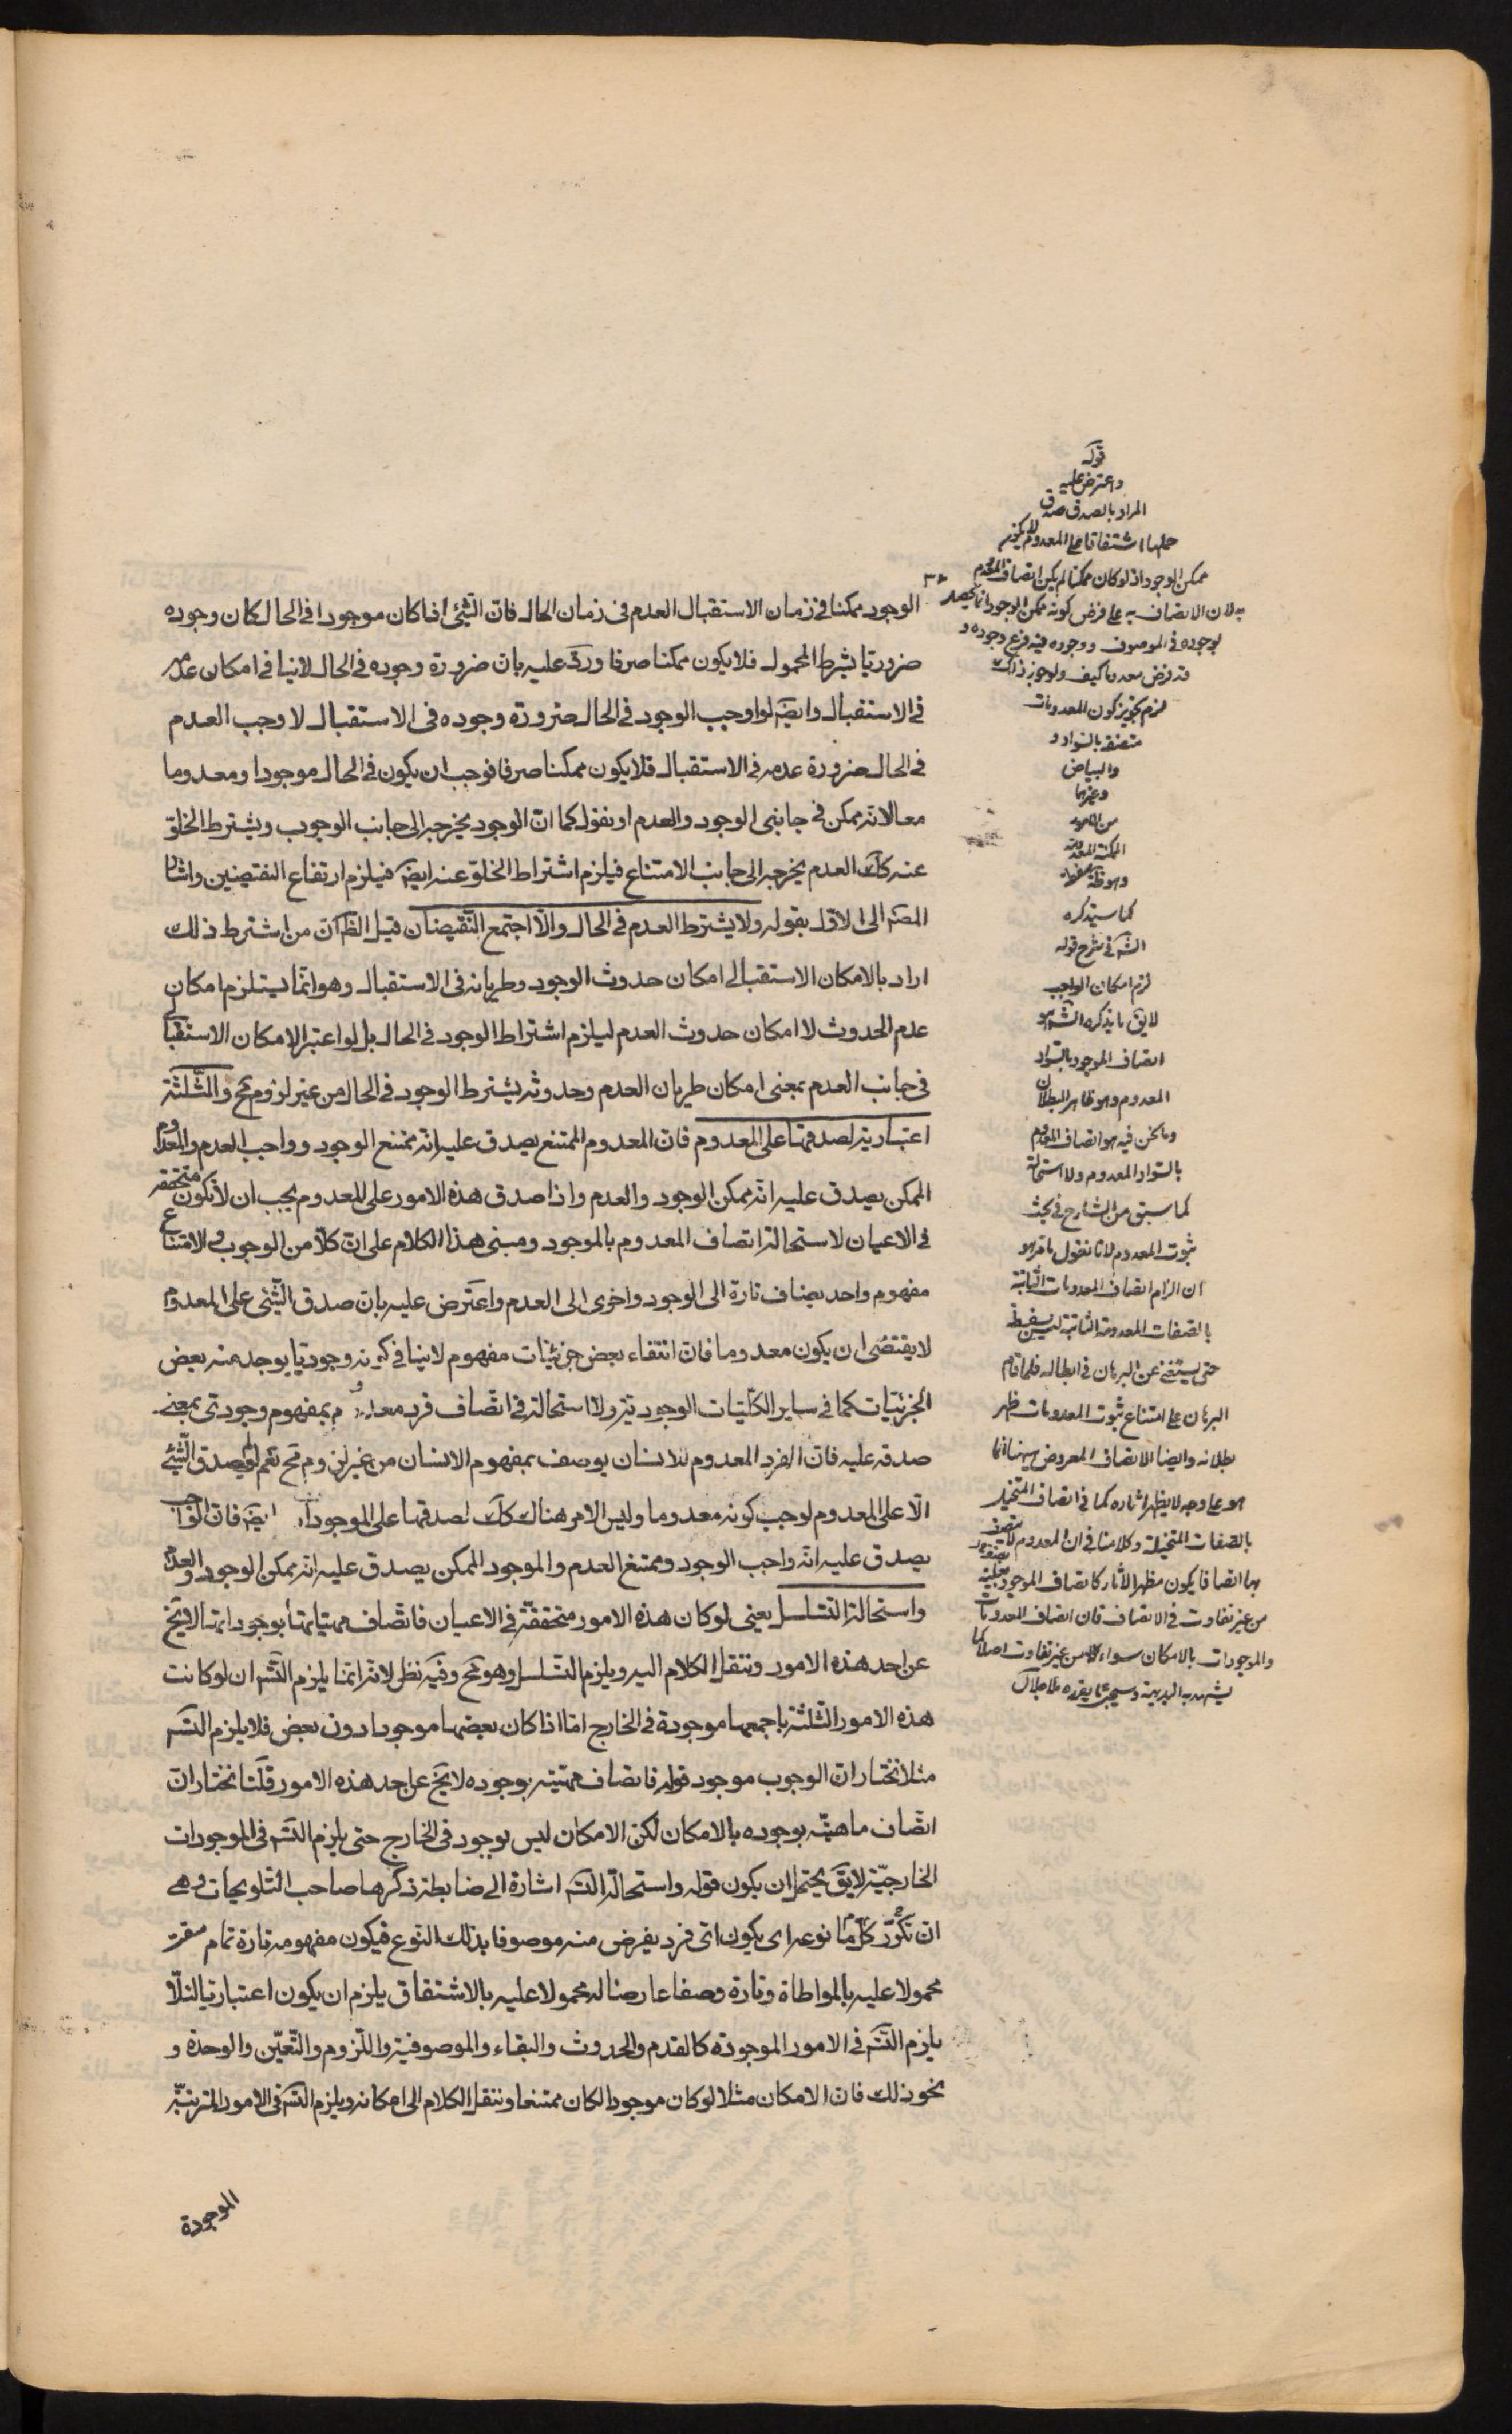 الوجود ممكنا في زمان الاستقبال العدم في زمان الحال فان الشيئ اذا كان موجودا في الحال كان وجوده
ضروريا بشرط المحمول فلا يكون ممكنا صرفا وردّ عليه بان ضرورة وجوده في الحال لا ينافي امكان عدمه
في الاستقبال وايضۤ لو اوجب الوجود في الحال ضرورة وجوده في الاستقبال لا وجب العدم
في الحال ضرورة عدمه في الاستقبال فلا يكون ممكنا صرفا فوجب ان يكون في الحال موجودا ومعدوما
معا لانه ممكن في جانبي الوجود والعدم او نقول كما ان الوجود يخرجه الى جانب الوجوب ويشترط الخلوّ
عنه كك العدم يخرجه الى جانب الامتناع فيلزم اشتراط الخلوّ عنه ايضۤ فيلزم ارتفاع النقيضين واشار
المصۤ الى الاول بقوله ولا يشترط العدم في الحال والّا اجتمع النّقيضان قيل الظۤ انّ من اشترط ذلك
اراد بالامكان الاستقبالي امكان حدوث الوجود وطريانه في الاستقبال وهو انّما يستلزم امكان
عدم الحدوث لا امكان حدوث العدم ليلزم اشتراط الوجود في الحال بل لو اعتبر الامكان الاستقبالي
في جانب العدم بمعنى امكان طريان العدم وحدوثه يشترط الوجود في الحال من غير لزوم مح والثّلثة
اعتبارية لصدقها على المعدوم فان المعدوم الممتنع يصدق عليه انه ممتنع الوجود وواجب العدم والمعدوم
الممكن يصدق عليه انه ممكن الوجود والعدم واذا صدق هذه الامور على المعدوم يجب ان لا تكون متحققة
في الاعيان لاستحالة اتصاف المعدوم بالموجود ومبنى هذا الكلام على ان كلّا من الوجوب والامتناع
مفهوم واحد يضاف تارة الى الوجود واخرى الى العدم واعترض عليه بان صدق الشّيئ على المعدوم
لا يقتضى ان يكون معدوما فان انتفاء بعض جزئيات مفهوم لا ينافي كونه وجوديا يوجد منه بعض
الجزئيّات كما في ساير الكلّيّات الوجودية ولا استحالة في اتّصاف فرد معدوم بمفهوم وجودىّ بمعنى
صدقه عليه فان الفرد المعدوم للانسان يوصف بمفهوم الانسان من غير لزوم مح نعم لو لم يصدق الشّيئ
الّا على المعدوم لوجب كونه معدوما وليس الامر هناك كك لصدقها على الموجودات ايضۤ فان الواجب
يصدق عليه انه واجب الوجود وممتنع العدم والموجود الممكن يصدق عليه انه ممكن الوجود والعدم
واستحالة التسلسل يعنى لو كان هذه الامور متحققة في الاعيان فاتّصاف مهيّاتها بوجوداتها لا يخ
عن احد هذه الامور وننقل الكلام اليه ويلزم التسلسل وهو مح وفيه نظر لانه انّما يلزم التسۤ ان لو كانت
هذه الامور الثلثة باجمعها موجودة في الخارج امّا اذا كان بعضها موجودا دون بعض فلا يلزم التسۤ
مثلا نختار انّ الوجوب موجود قوله فاتصاف مهيّته بوجوده لا يخ عن احد هذه الامور قلنا نختار انّ
اتّصاف ماهيّته بوجوده بالامكان لكن الامكان ليس بوجود في الخارج حتى يلزم التسۤ في الموجودات
الخارجيّة لا يق يحتمل ان يكون قوله واستحالة التسۤ اشارة الى ضابطة ذكرها صاحب التّلويحات وهى
انّ كلّ ما تكرّر نوعه اى يكون اىّ فرد يفرض منه موصوفا بذلك النّوع فيكون مفهومه تارة تمام حقيقته
محمولا عليه بالمواطاة وتارة وصفا عارضا له محمولا عليه بالاشتقاق يلزم ان يكون اعتباريا لئلّا
يلزم التسۤ في الامور الموجودة كالقدم والحدوث والبقاء والموصوفية واللّزوم والتّعيّن والوحدة و
نحو ذلك فان الامكان مثلا لو كان موجودا لكان ممتنعا وننقل الكلام الى امكانه ويلزم التسۤ في الامور المترتّبة
الموجودة
قوله
واعترض عليه
المراد بالصدق صدق
حملها اشتقاقا على المعدوم لا يكون
ممكن الوجود اذ لو كان ممكنا لم يكن اتصاف المعدوم
به لان الاتصاف به على فرض كونه ممكن الوجود انما يحصل
بوجوده في الموصوف ووجوده فيه فرع وجوده و
قد فرض معدوما كيف ولو جوز ذلك
لزم تجويز كون المعدومات
متصفة بالسواد و
والبياض
وغيرها
من الامور
الممكنة المعدومة
كما سيذكره
الشۤ في شرح قوله
لزم امكان الواجب
لا يق ما يذكره الشۤ هو
اتصاف الموجود بالسواد
المعدوم وهو ظاهر البطلان
وما نحن فيه هو اتصاف المعدوم
بالسواد المعدوم ولا استحالة
كما سبق من الشارح في بحث
ثبوت المعدوم لانا نقول ما مر هو
ان الزام اتصاف المعدومات الثابتة
بالصفات المعدومة الثابتة ليس سفسطة
حتى يستغنى عن البرهان في ابطاله فلما قام
البرهان على امتناع ثبوت المعدومات ظهر
بطلانه وايضا الاتصاف المعروض بينها انما
هو على وجه لا يظهر اثاره كما في اتصاف المتخيل
بالصفات المتخيلة وكلامنا في ان المعدوم لا يتصف
بها اتصافا يكون مظهر الاثار كاتصاف الموجود
من غير تفاوت في الاتصاف فان اتصاف المعدومات
والموجودات بالامكان سواء من غير تفاوت اصلا كما
يشهد به البديهة